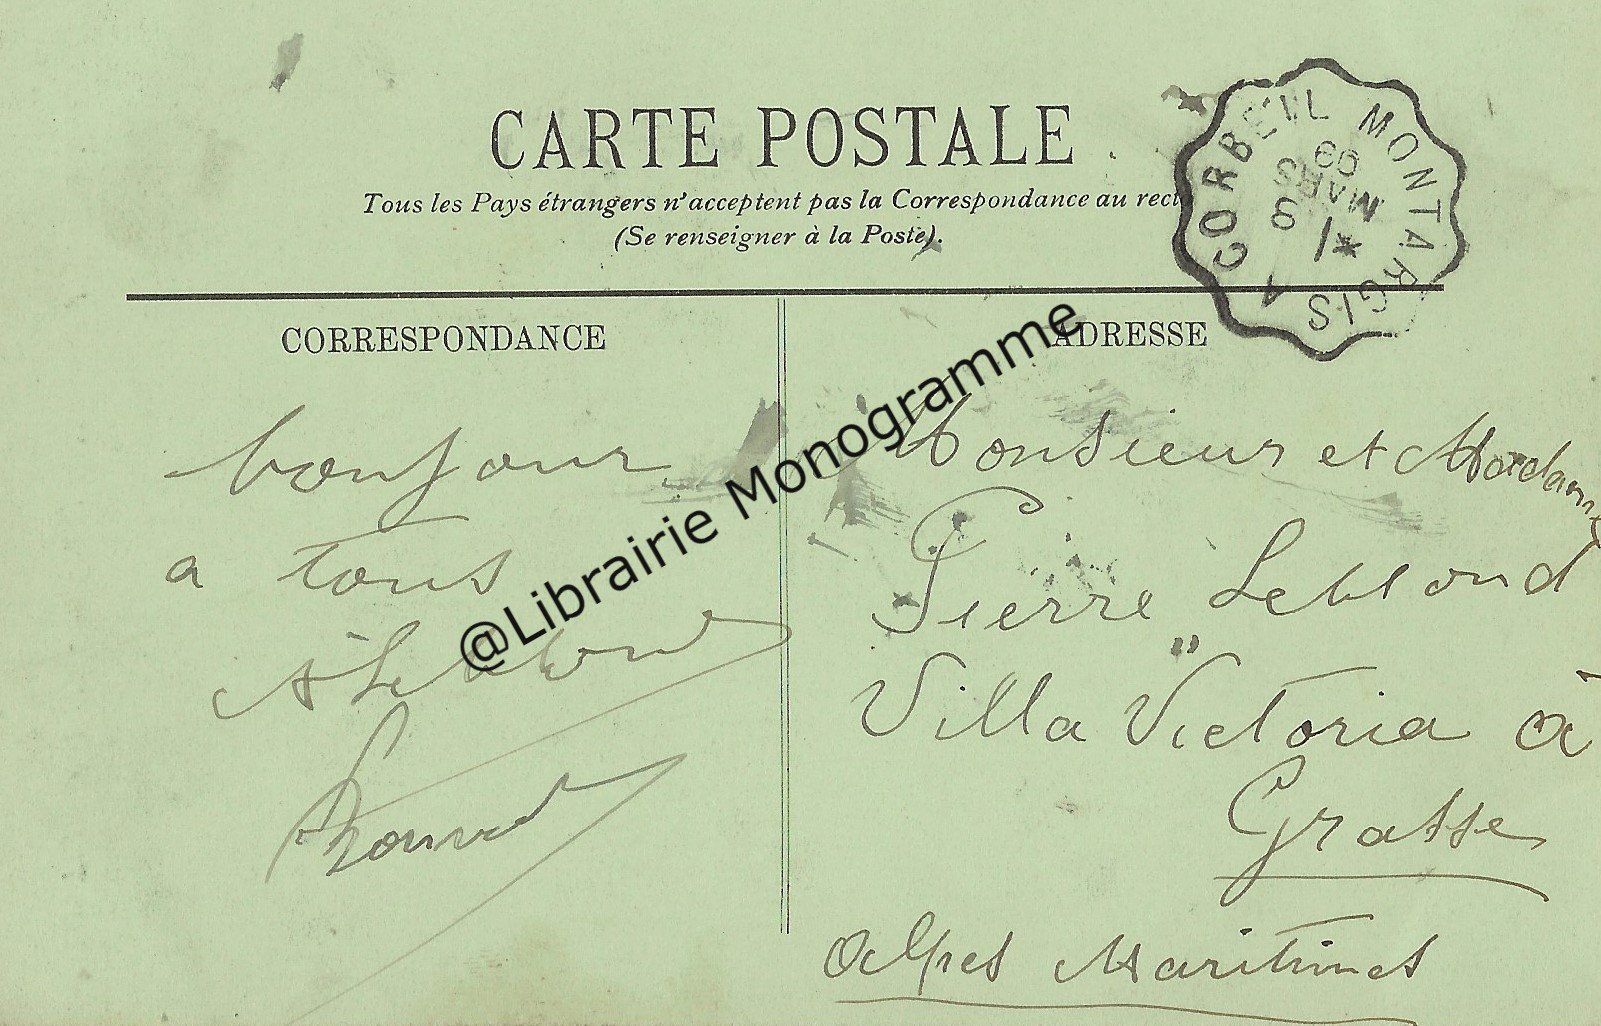 CARTE POSTALE
Tous les Pays étrangers n'acceptent pas la Correspondance au rect
(Se renseigner à la Poste).
CORBEIL MONTARGIS
MARS
09
CORRESPONDANCE
bonjour
a tous
ALeblond
ADRESSE
Monsieur et Madame
Pierre Leblond
Villa "Victoria à
Grasse
Alpes Maritimes
@Librairie Monogramme